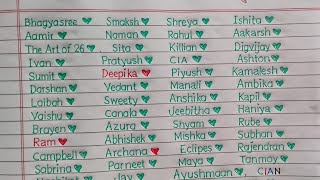 Bhagyasree Smaksh Shreya Ishita
Aamir Naman Rahul Aakarsh
The Art of 26 Sita Killian Digvijay
Ivan Pratyush CIA Ashton
Sumit Deepika Piyush Kamalesh
Darshan Vedant Manali Ambika
Laibah Sweety Anshika Kapil
Vaishu Canala Jeebitha Haniya
Brayen Azura Shyam Rube
Ram Abhishek Mishka Subhan
Campbell Archana Eclipes Rajendran
Sabrina Parneet Maya Tanmay
Jay Ayushmaan CIAN